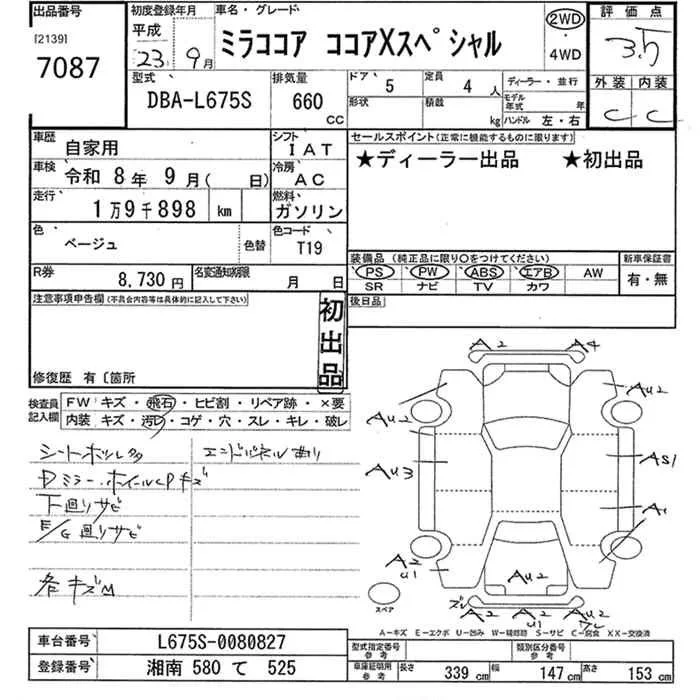 出品番号
[2139]
7087
初度登録年月
平成
23年 9月
車名・グレード
ミラココア ココアXスペシャル
2WD
・
4WD
評価点
3.5
外装 内装
C C
型式
DBA-L675S
排気量
660
CC
ドア 5
定員 4 人
形状
積載 kg
ディーラー・並行
モデル年式 年
ハンドル 左・右
車歴 自家用
シフト IAT
車検 令和 8年 9月( 日)
冷房 AC
走行 1万9千898 km
燃料 ガソリン
色 ベージュ 色替
色コード T19
R券 8,730円
名変通知期限 月 日
セールスポイント(正常に機能するものに限ります)
★ディーラー出品 ★初出品
装備品(純正品に限り○をつけてください)
PS PW ABS エアB AW
SR ナビ TV カワ
新車保証書
有・無
後日品
注意事項申告欄(不具合内容等は具体的に記入して下さい)
初出品
修復歴 有〔箇所
検査員記入欄
FW キズ・飛石・ヒビ割・リペア跡・×要
内装 キズ・汚レ・コゲ・穴・スレ・キレ・破レ
エンドパネル曲り
Dミラー・ホイールCPキズ
下廻りサビ
E/G廻りサビ
各キズM
A2 A4
AU2 AU2
AU3 AS1
A1
A2
U1
AU2
スペア
ズレ A2 A2 AU2
U1
A-キズ E-エクボ U-凹み W-補修跡 S-サビ C-腐食 XX-交換済
車台番号 L675S-0080827
登録番号 湘南 580 て 525
型式指定番号
参考
類別区分番号
参考
車庫証明用
参考
長さ 339 cm
幅 147 cm
高さ 153 cm